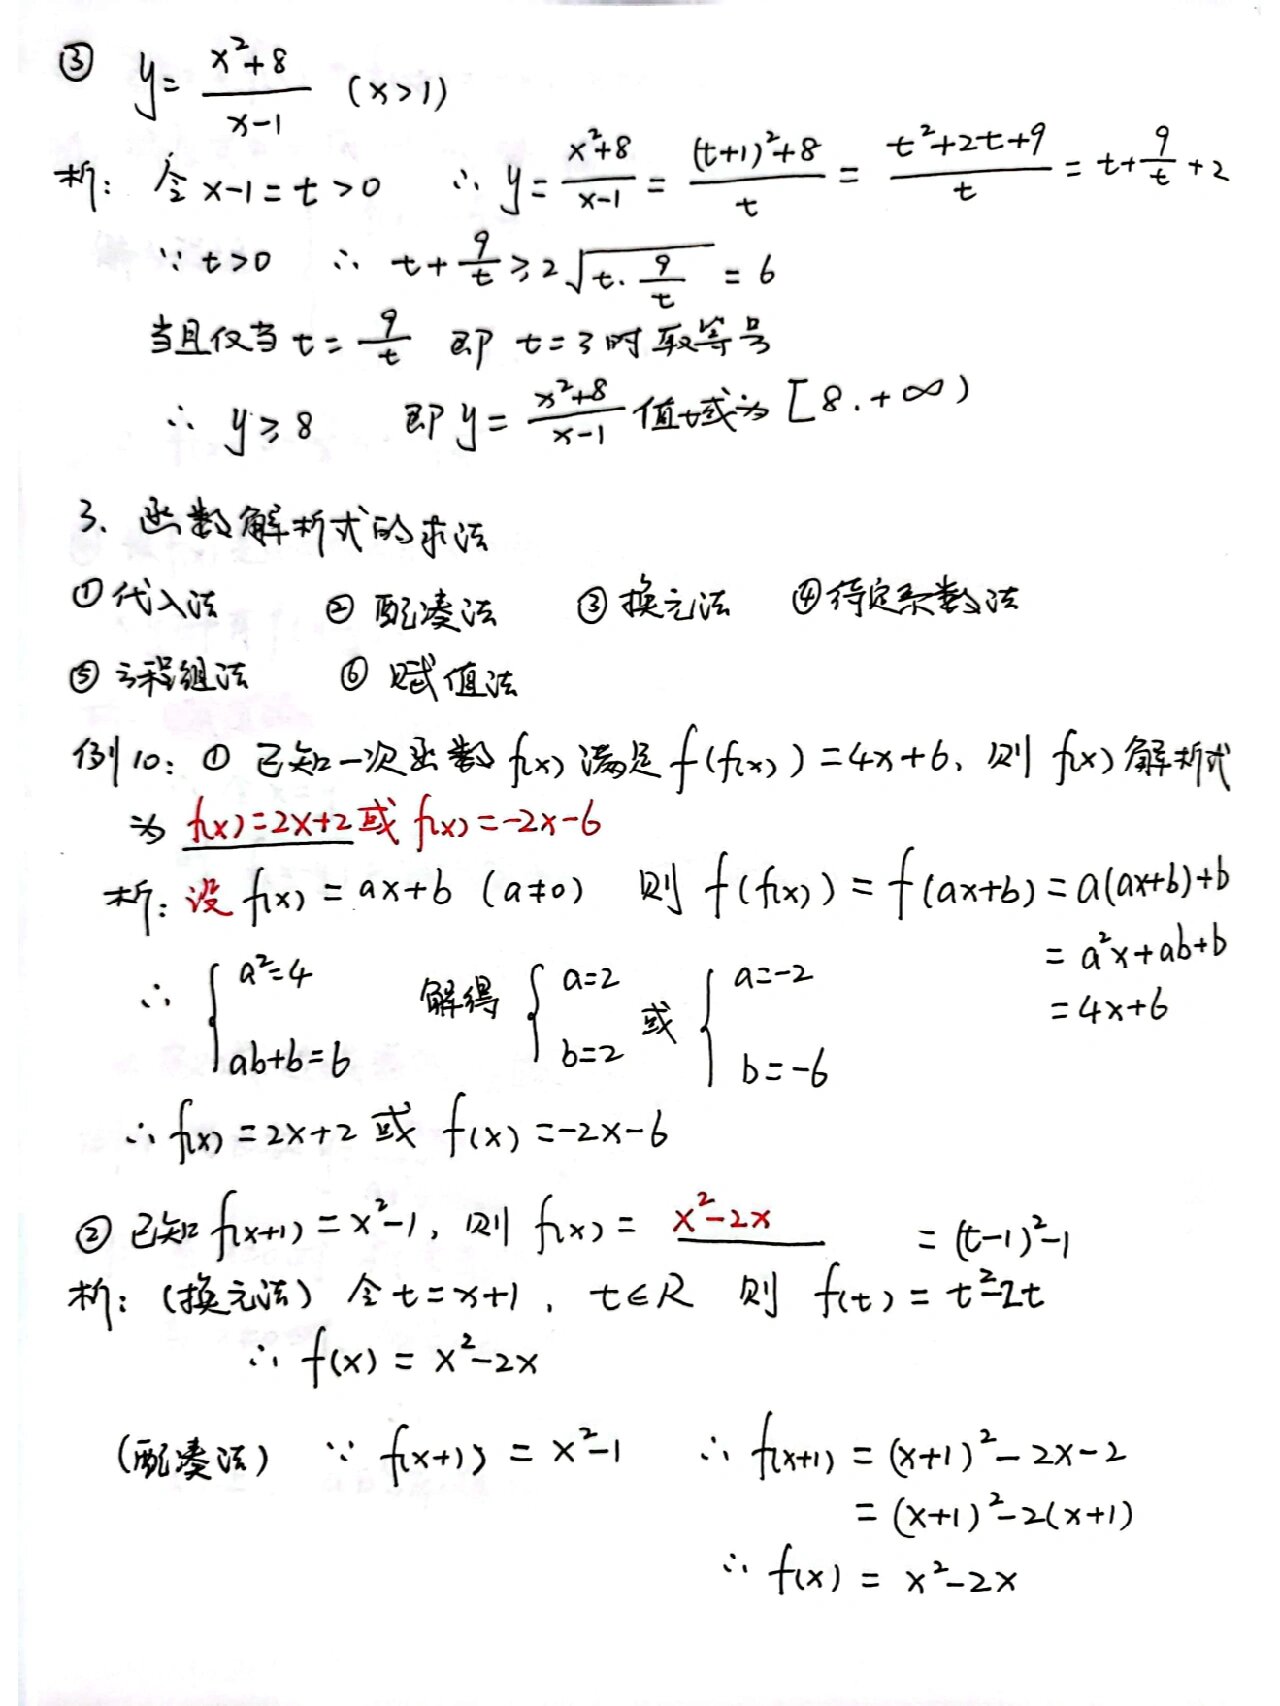 ③ y = \frac{x²+8}{x-1} (x>1)
析: 令 x-1=t>0 ∴ y = \frac{x²+8}{x-1} = \frac{(t+1)²+8}{t} = \frac{t²+2t+9}{t} = t+\frac{9}{t}+2
∵ t>0 ∴ t+\frac{9}{t} ≥ 2\sqrt{t·\frac{9}{t}} = 6
当且仅当 t = \frac{9}{t} 即 t=3时 取等号
∴ y≥8 即 y = \frac{x²+8}{x-1} 值域为 [8,+∞)
3、函数解析式的求法
①代入法 ② 配凑法 ③换元法 ④待定系数法
⑤方程组法 ⑥ 赋值法
例10: ① 已知一次函数 f(x) 满足 f(f(x))=4x+6, 则 f(x) 解析式
为 f(x)=2x+2 或 f(x)=-2x-6
析: 设 f(x) = ax+b (a≠0) 则 f(f(x)) = f(ax+b) = a(ax+b)+b
= a²x+ab+b
= 4x+6
∴ { a²=4 ab+b=6 解得 { a=2 b=2 或 { a=-2 b=-6
∴ f(x) = 2x+2 或 f(x) = -2x-6
② 已知 f(x+1) = x²-1, 则 f(x) = x²-2x
= (t-1)²-1
析: (换元法) 令 t=x+1, t∈R 则 f(t) = t²-2t
∴ f(x) = x²-2x
(配凑法) ∵ f(x+1) = x²-1 ∴ f(x+1) = (x+1)²-2x-2
= (x+1)²-2(x+1)
∴ f(x) = x²-2x